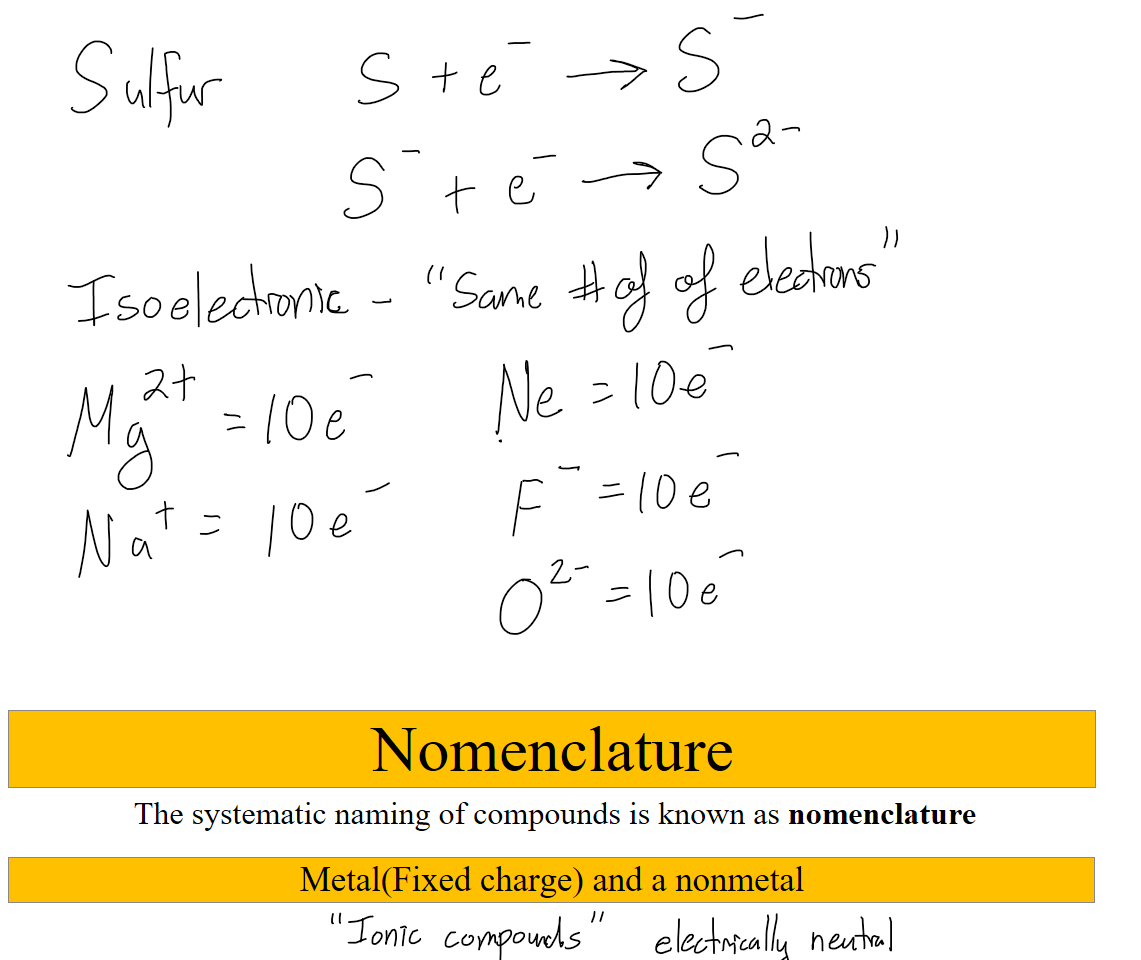 Sulfur S + e⁻ → S⁻
S⁻ + e⁻ → S²⁻
Isoelectronic - "Same # of of electrons"
Mg²⁺ = 10e⁻ Ne = 10e⁻
F⁻ = 10e⁻
Na⁺ = 10e⁻
O²⁻ = 10e⁻
Nomenclature
The systematic naming of compounds is known as nomenclature
Metal(Fixed charge) and a nonmetal
"Ionic compounds" electrically neutral